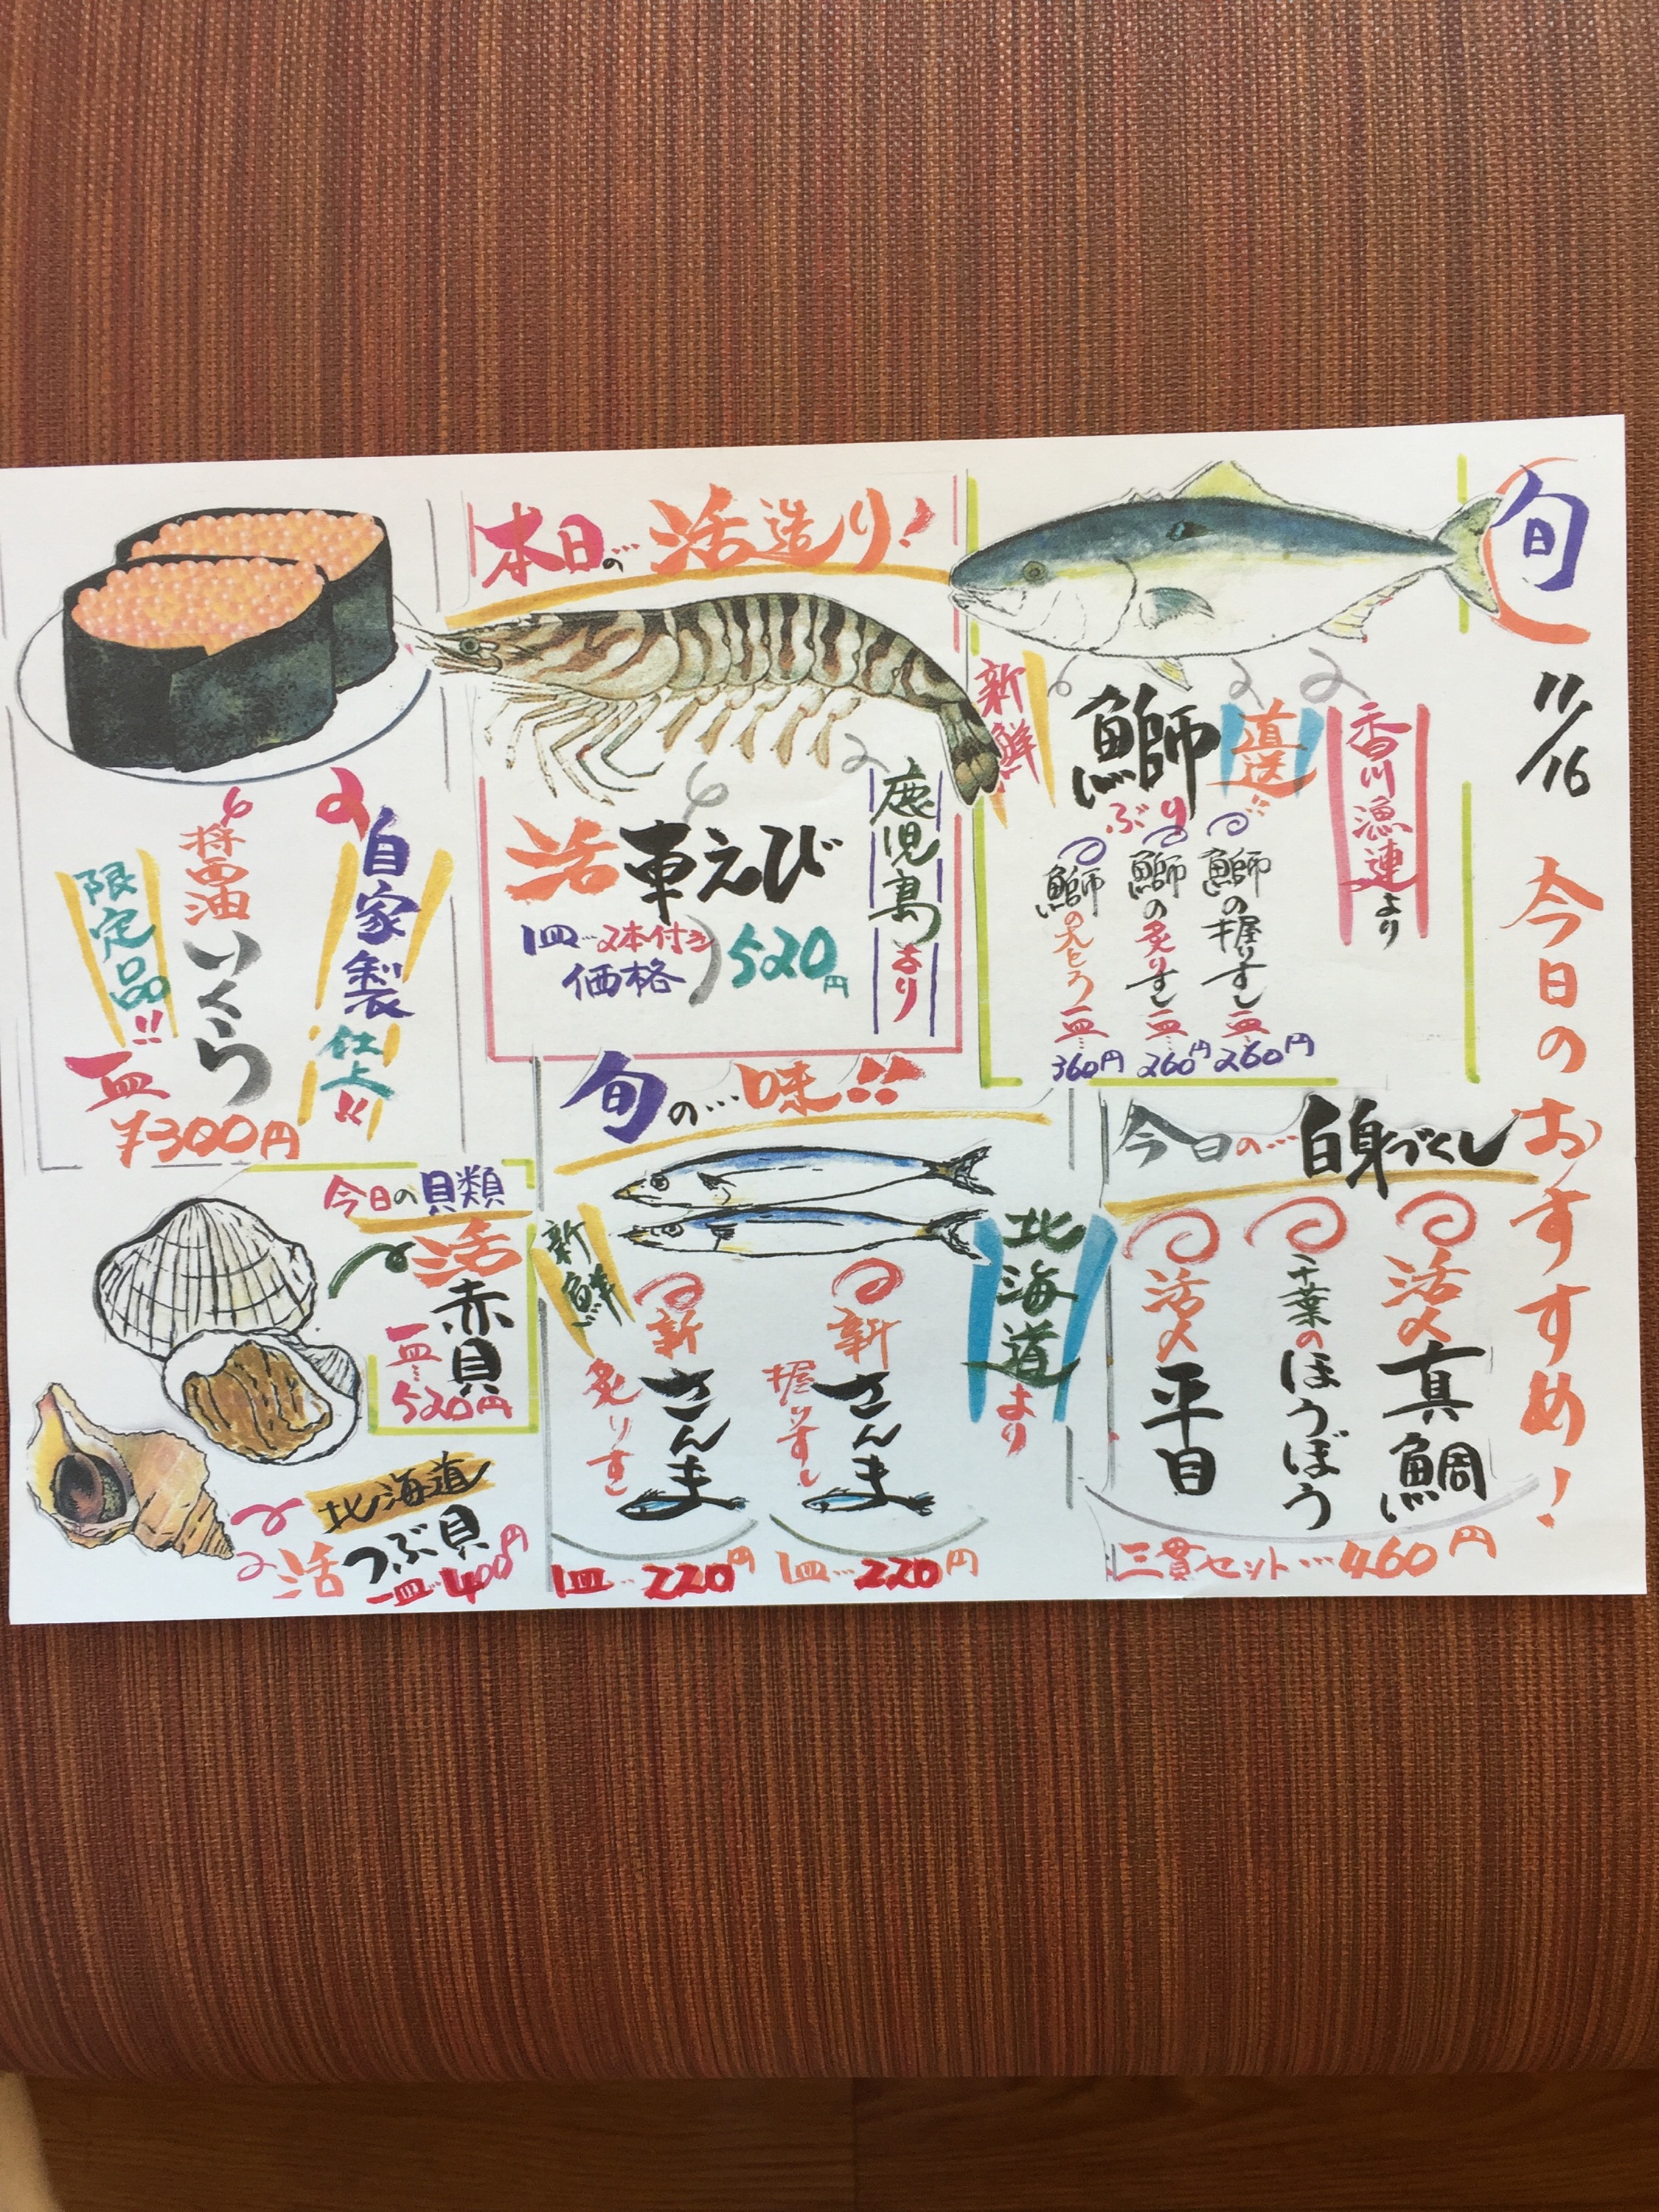 旬
11/16
今日のおすすめ!
香川漁連より
直送!!
新鮮
鰤
ぶり
鰤の握りすし一皿…260円
鰤の炙りすし一皿…260円
鰤の大とろ一皿…360円
本日の…活造り!
鹿児島より
活車えび
1皿…2本付き
価格
520円
自家製
仕込!!
醤油いくら
限定品!!
一皿
¥300円
今日の…白身づくし
活〆真鯛
千葉のほうぼう
活〆平目
三貫セット…460円
旬の…味!!
北海道より
新鮮
新さんま
握りすし
1皿…220円
新さんま
炙りすし
1皿…220円
今日の貝類
活赤貝
一皿…520円
北海道
活つぶ貝
一皿…400円